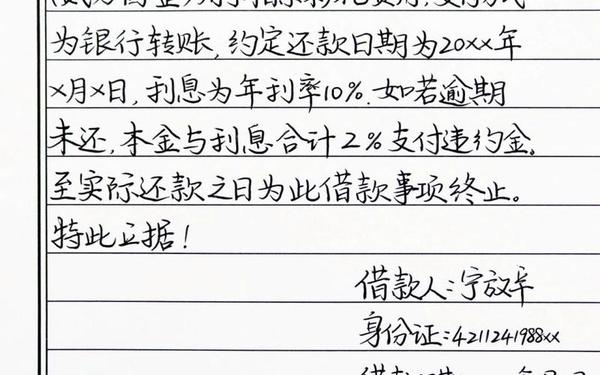 为银行转账,约定还款日期为20xx年
x月x日,利息为年利率10%.如若逾期
未还,本金与利息合计2%支付违约金。
至实际还款之日为此借款事项终止。
特此立据!
借款人:宁放年
身份证:4211241988xx